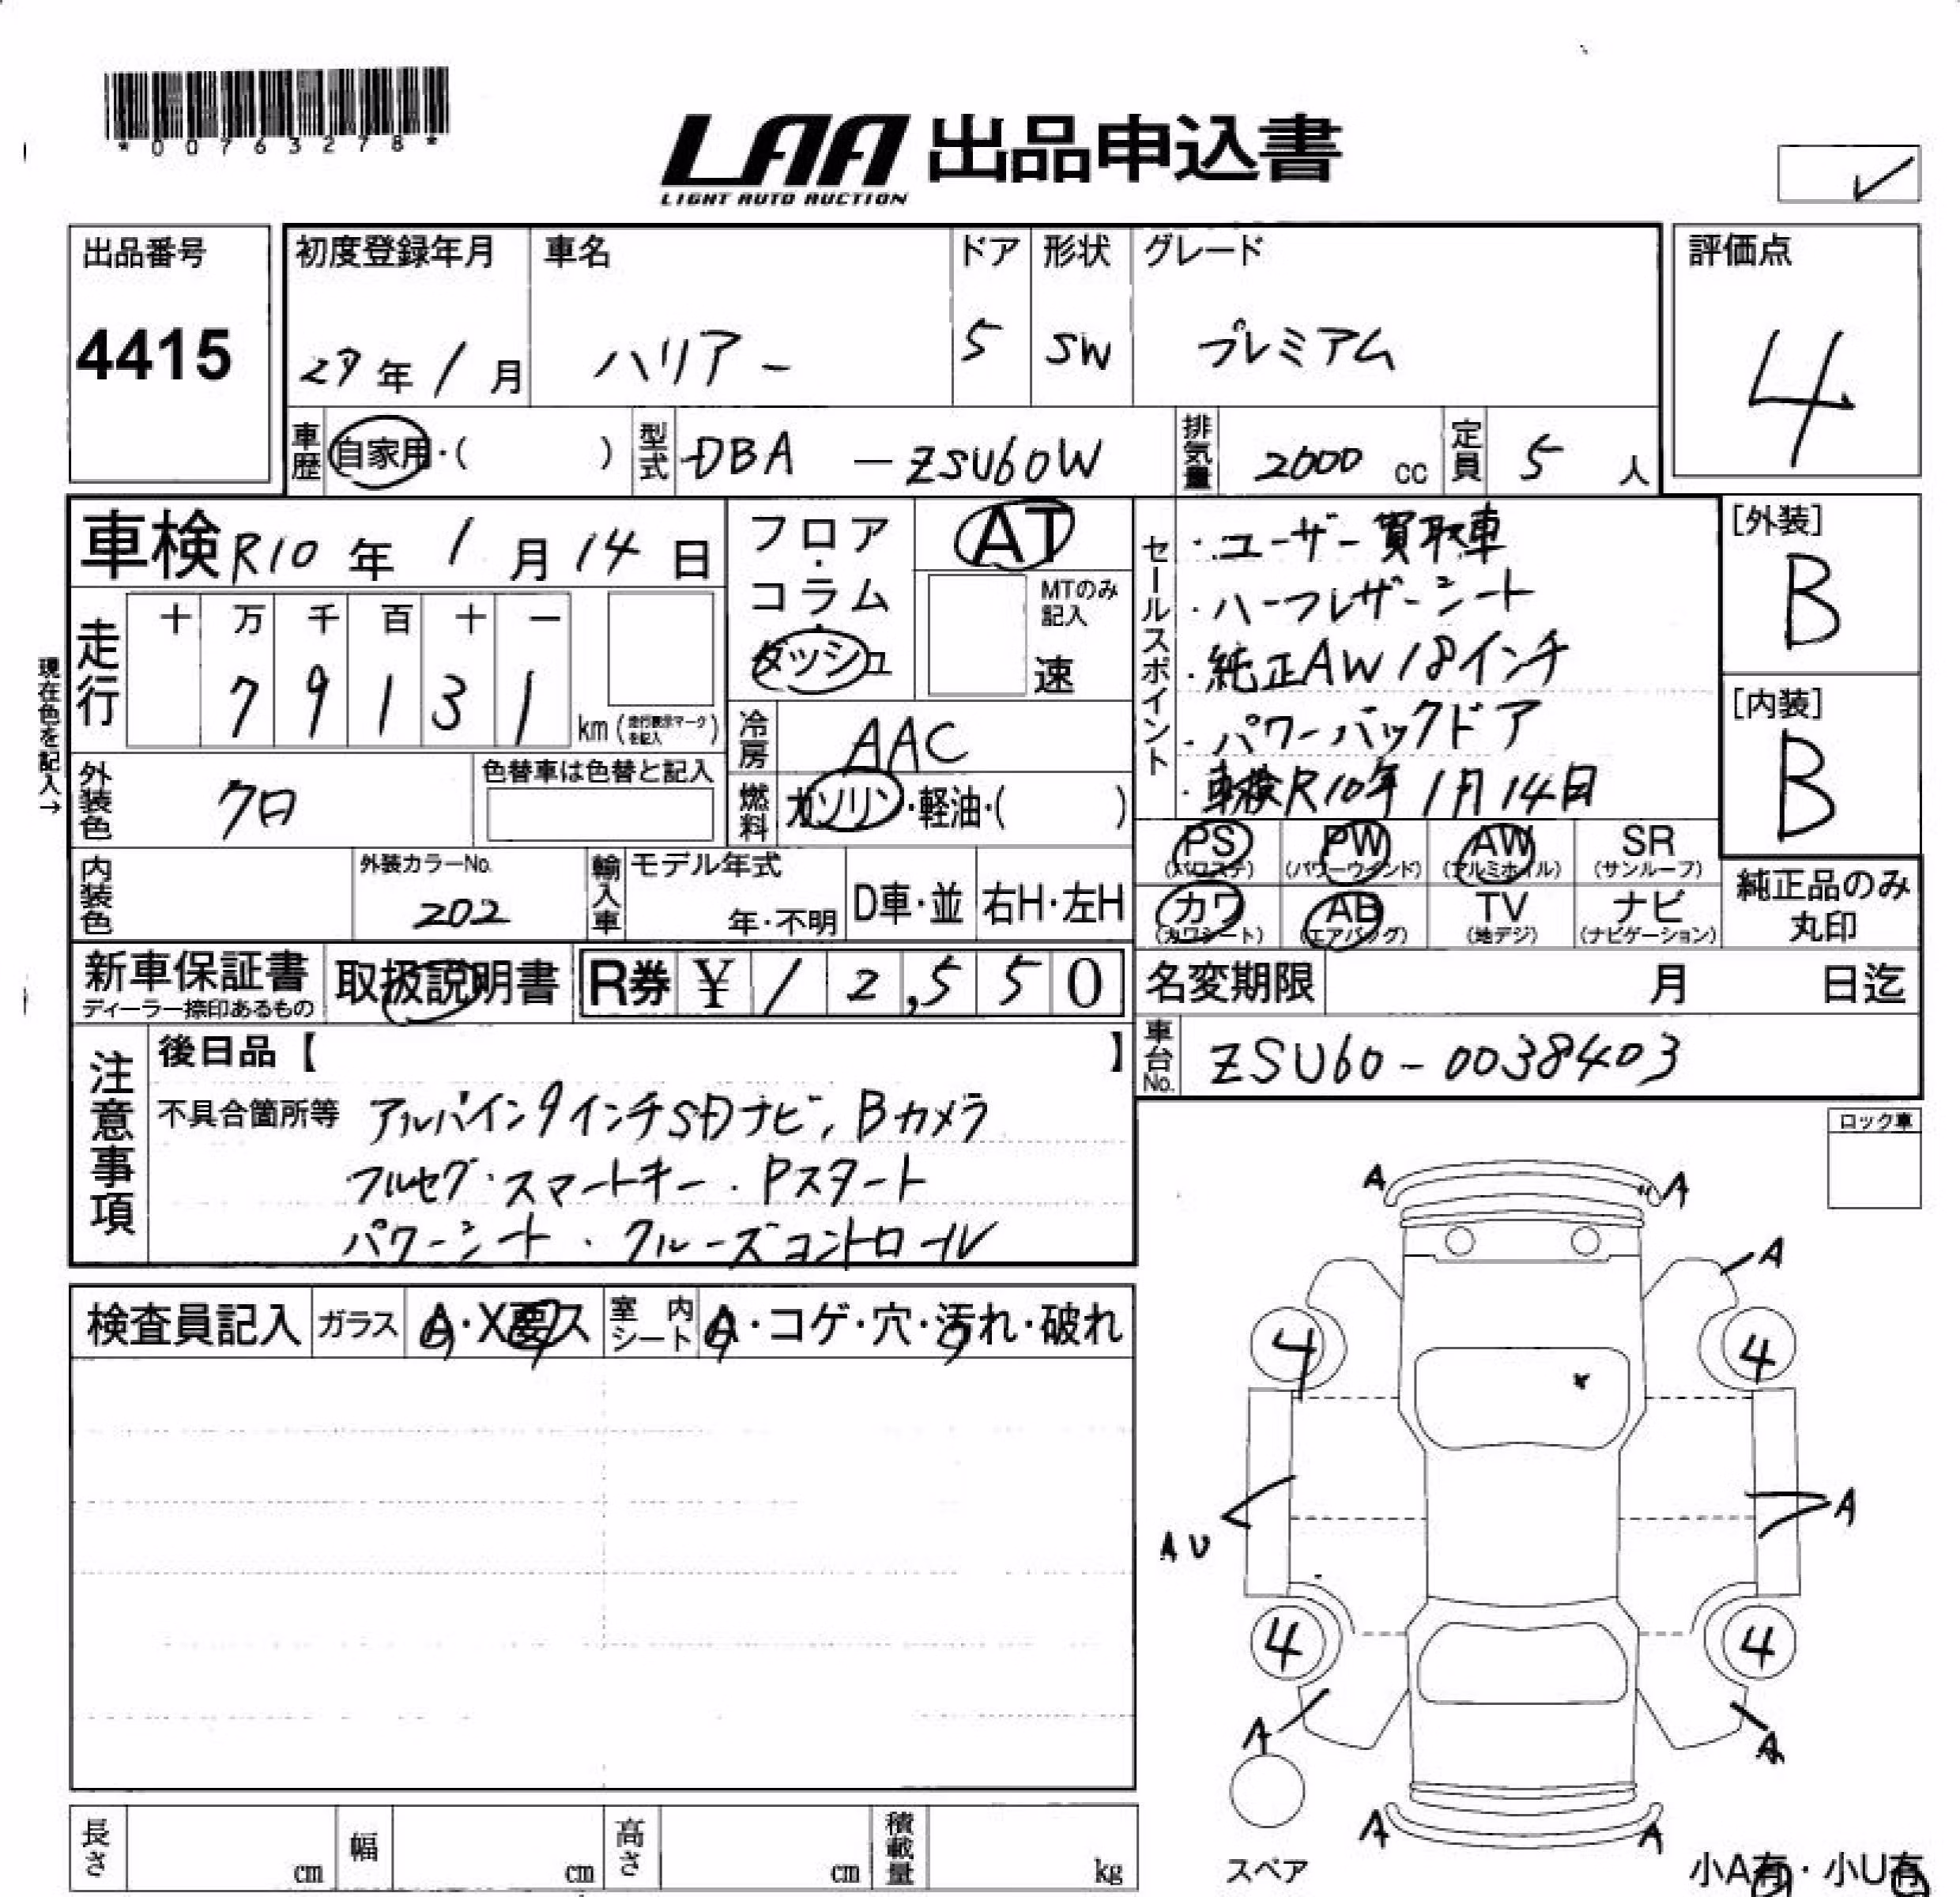 *00763278*
LAA 出品申込書
LIGHT AUTO AUCTION
出品番号
4415
初度登録年月
27年 1月
車名
ハリアー
ドア
5
形状
SW
グレード
プレミアム
評価点
4
車歴 自家用・( )
型式 DBA - ZSU60W
排気量 2000 cc
定員 5 人
車検 R10年 1月14日
フロア・コラム・ダッシュ
AT
MTのみ記入
速
走行
十 万 千 百 十 一
7 9 1 3 1
km (走行表示マークを記入)
現在色を記入→
冷房 AAC
燃料 ガソリン・軽油・( )
外装色 クロ
色替車は色替と記入
内装色
外装カラーNo.
202
輸入車
モデル年式
年・不明
D車・並
右H・左H
セールスポイント
・ユーザー買取車
・ハーフレザーシート
・純正AW18インチ
・パワーバックドア
・車検R10年1月14日
[外装]
B
[内装]
B
PS (パワステ)
PW (パワーウインド)
AW (アルミホイル)
SR (サンルーフ)
カワ (カワシート)
AB (エアバッグ)
TV (地デジ)
ナビ (ナビゲーション)
純正品のみ丸印
新車保証書
ディーラー捺印あるもの
取扱説明書
R券 ¥12,550
名変期限 月 日迄
車台No. ZSU60-0038403
注意事項
後日品【 】
不具合箇所等
アルパイン9インチSDナビ, Bカメラ
フルセグ・スマートキー・Pスタート
パワーシート・クルーズコントロール
ロック車
検査員記入
ガラス A・X要ス
室内シート A・コゲ・穴・汚れ・破れ
A
A
A
4
4
A U
A
4
4
A
A
A
A
スペア
小A有・小U有
長さ cm
幅 cm
高さ cm
積載量 kg